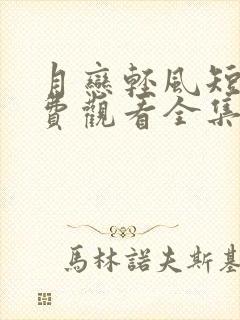 月戀輕風短
費觀看全集
馬林諾夫斯基